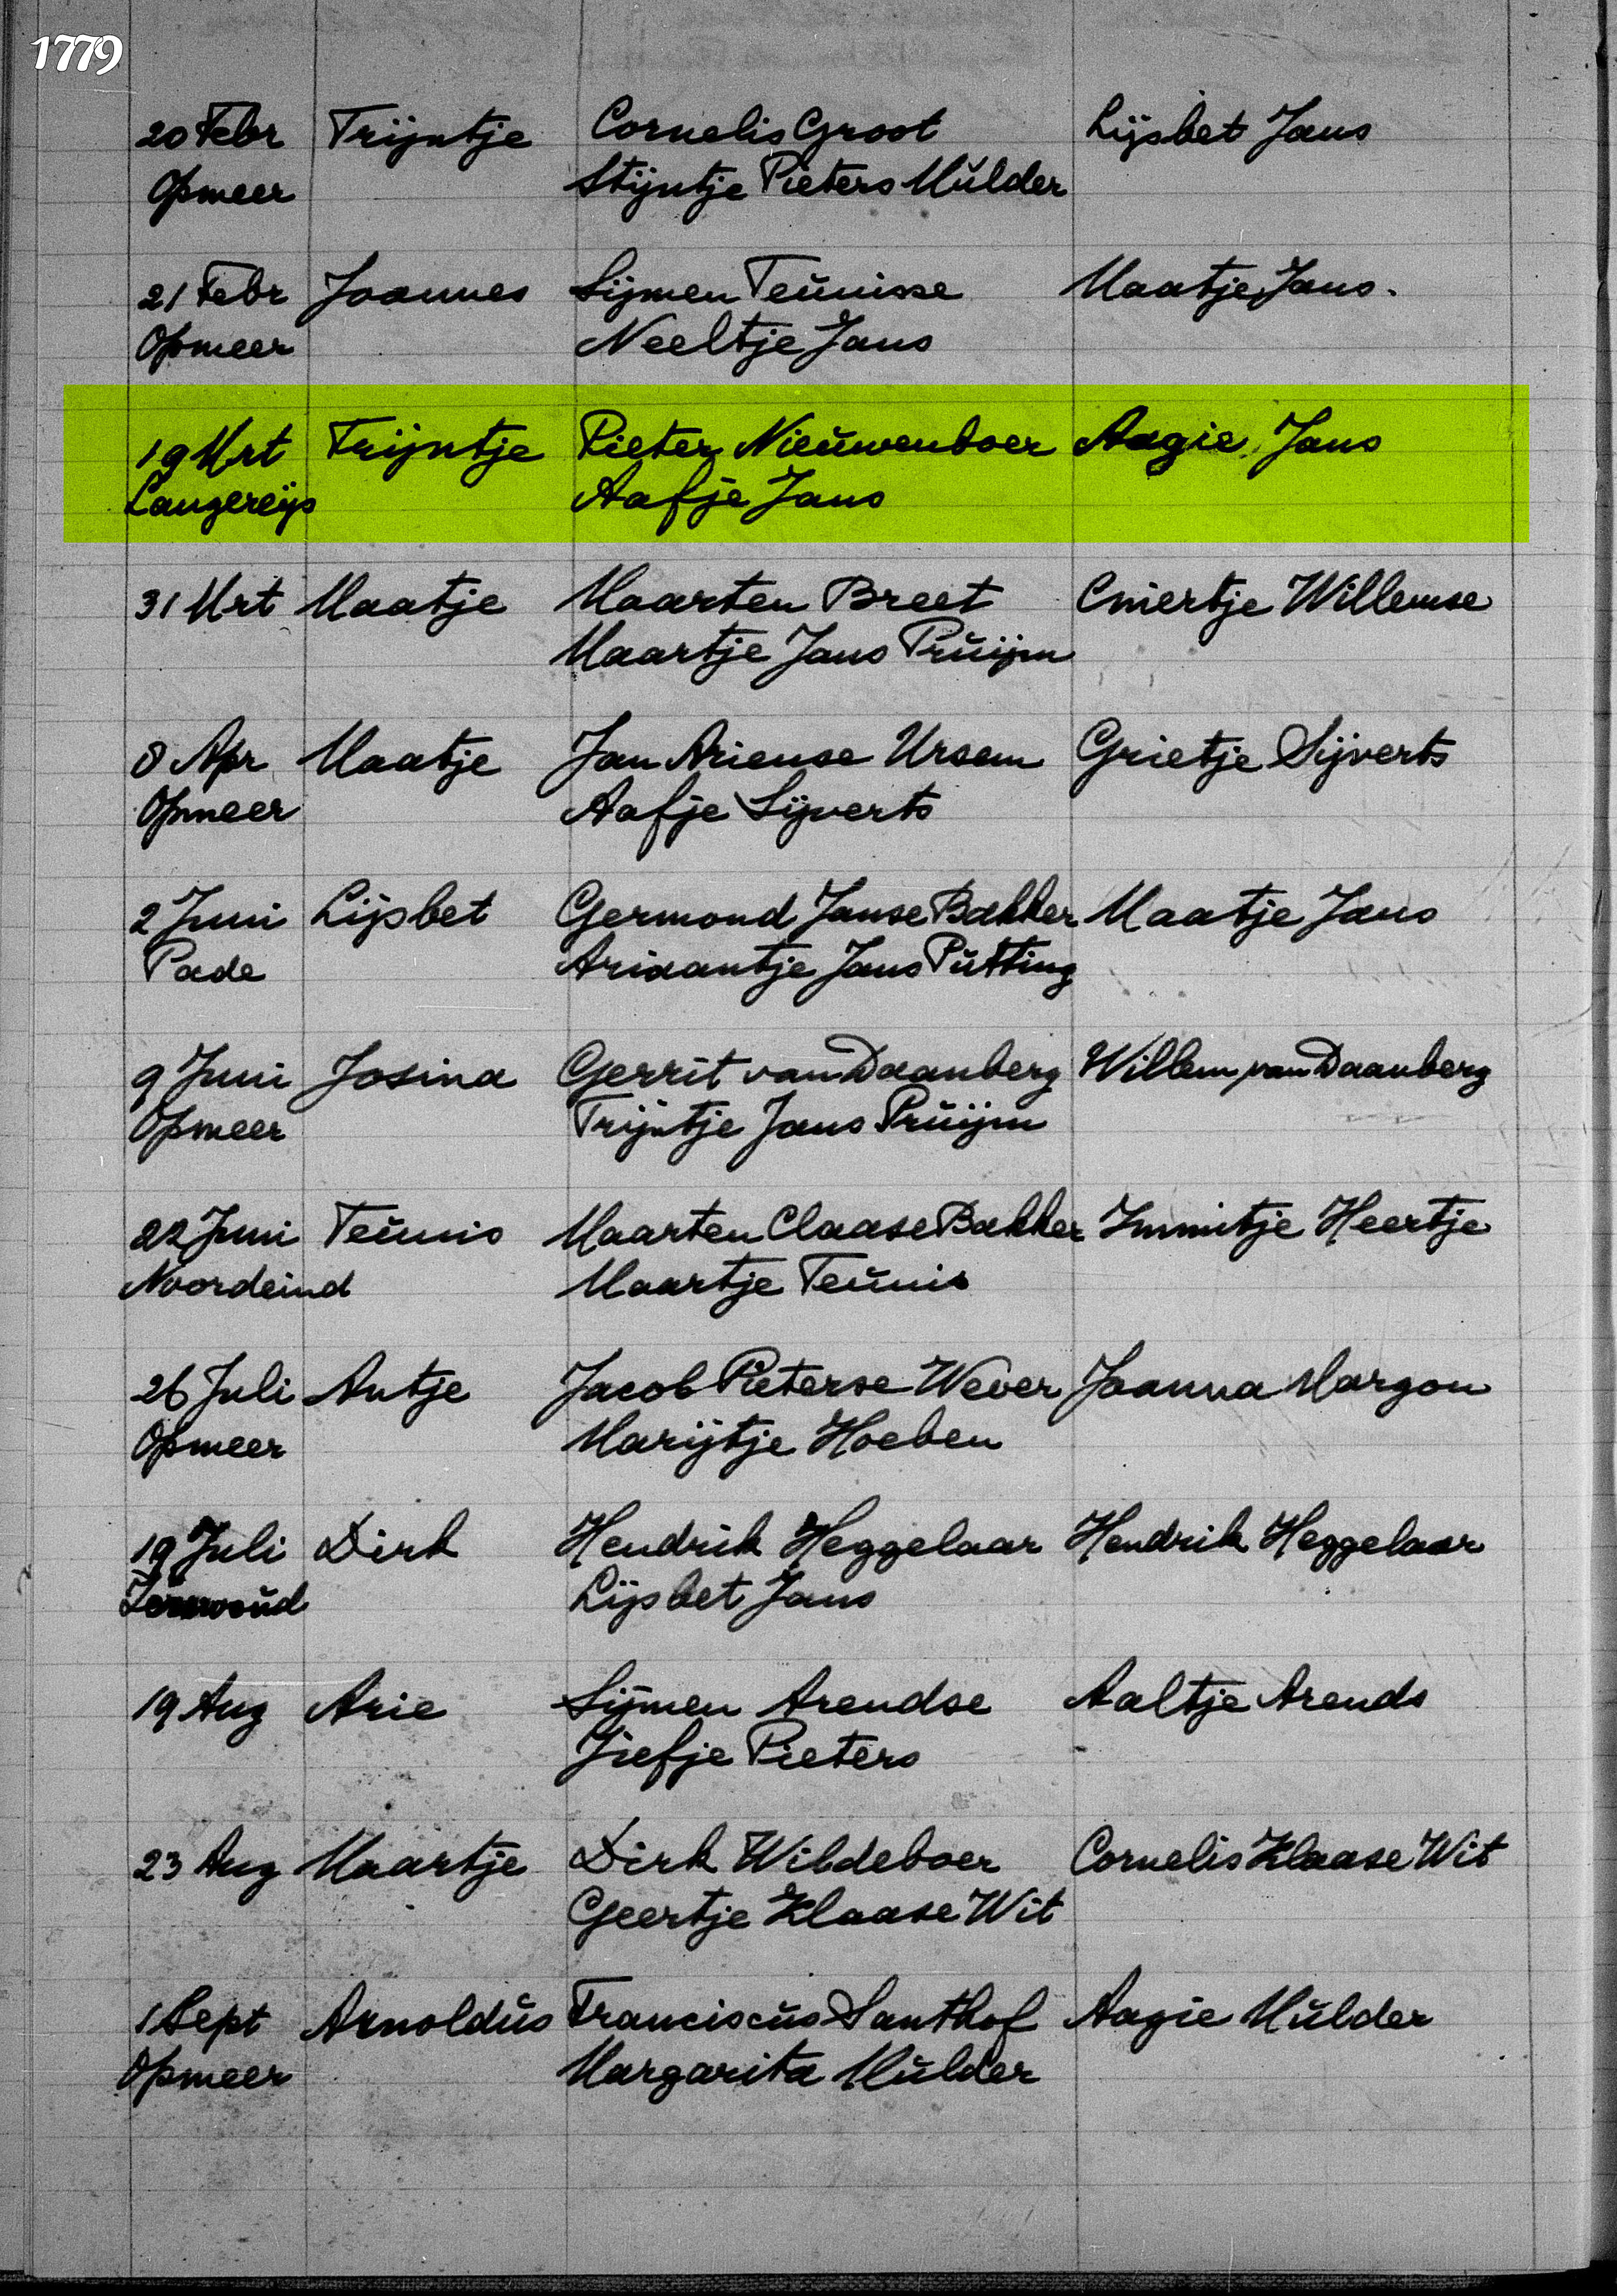 1779
20 Febr Trijntje Cornelis Groot Lijsbet Jans
Opmeer Stijntje Pieters Mŭlder
21 Febr Joannes Sijmen Teŭnisse Maatje Jans.
Opmeer Neeltje Jans
19 Mrt Trijntje Pieter Nieŭwenboer Aagie Jans
Langereijs Aafje Jans
31 Mrt Maatje Maarten Breet Cniertje Willemse
Maartje Jans Prŭijm
8 Apr Maatje Jan Ariense Ursem Grietje Sijverts
Opmeer Aafje Sijverts
2 Juni Lijsbet Germond Janse Bakker Maatje Jans
Pade Ariaantje Jans Pŭtting
9 Juni Josina Gerrit van Daanberg Willem van Daanberg
Opmeer Trijntje Jans Prŭijm
22 Juni Teŭnis Maarten Claase Bakker Immitje Heertje
Noordeind Maartje Teŭnis
26 Juli Antje Jacob Pieterse Wever Joanna Margon
Opmeer Marijtje Hoeben
19 Juli Dirk Hendrik Heggelaar Hendrik Heggelaar
Lijsbet Jans
19 Aug Arie Sijmen Arendse Aaltje Arends
Jiefje Pieters
23 Aug Maartje Dirk Wildeboer Cornelis Klaase Wit
Geertje Klaase Wit
1 Sept Arnoldŭs Franciscŭs Santhof Aagie Mŭlder
Opmeer Margarita Mŭlder